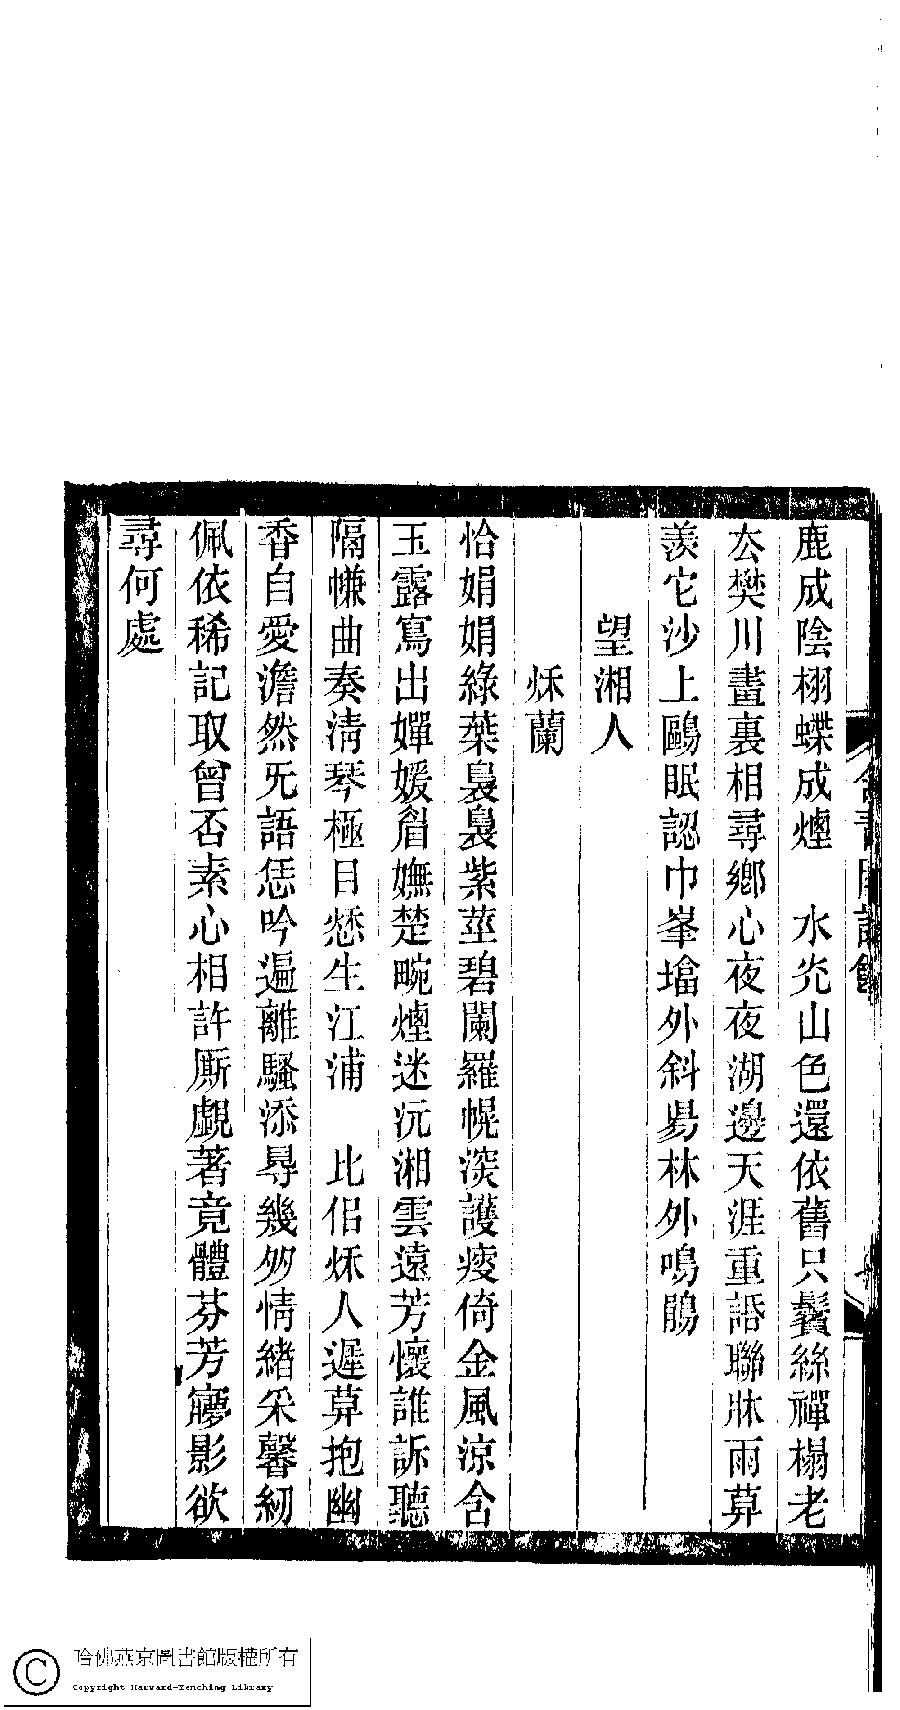 鹿成陰栩蝶成煙　水光山色還依舊只鬢絲禪榻老
厺樊川畫裏相尋鄉心夜夜湖邊天涯重話聯牀雨莫
羨它沙上鷗眠認巾峯墖外斜昜林外鳴鵑
望湘人
秌蘭
恰娟娟綠葉裊裊紫莖碧闌羅幌深護瘦倚金風涼含
玉露寫出嬋媛眉嫵楚畹煙迷沅湘雲遠芳懷誰訴聽
隔㡘曲奏淸琴極目愁生江浦　比侶秌人遲莫抱幽
香自愛澹然无語恁吟遍離騷添㝵幾多情緒采馨紉
佩依稀記取曾否素心相許厮覷著竟體芬芳㝱影欲
尋何處
哈佛燕京圖書館版權所有
Copyright Harvard-Yenching Library